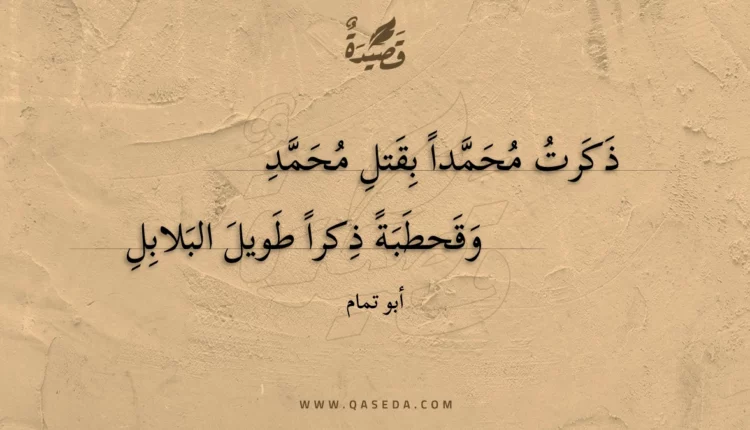 قَصِيْدَةٌ
ذَكَرتُ مُحَمَّداً بِقَتلِ مُحَمَّدِ
وَقَحطَبَةً ذِكراً طَويلَ البَلابِلِ
أبو تمام
WWW.QASEDA.COM